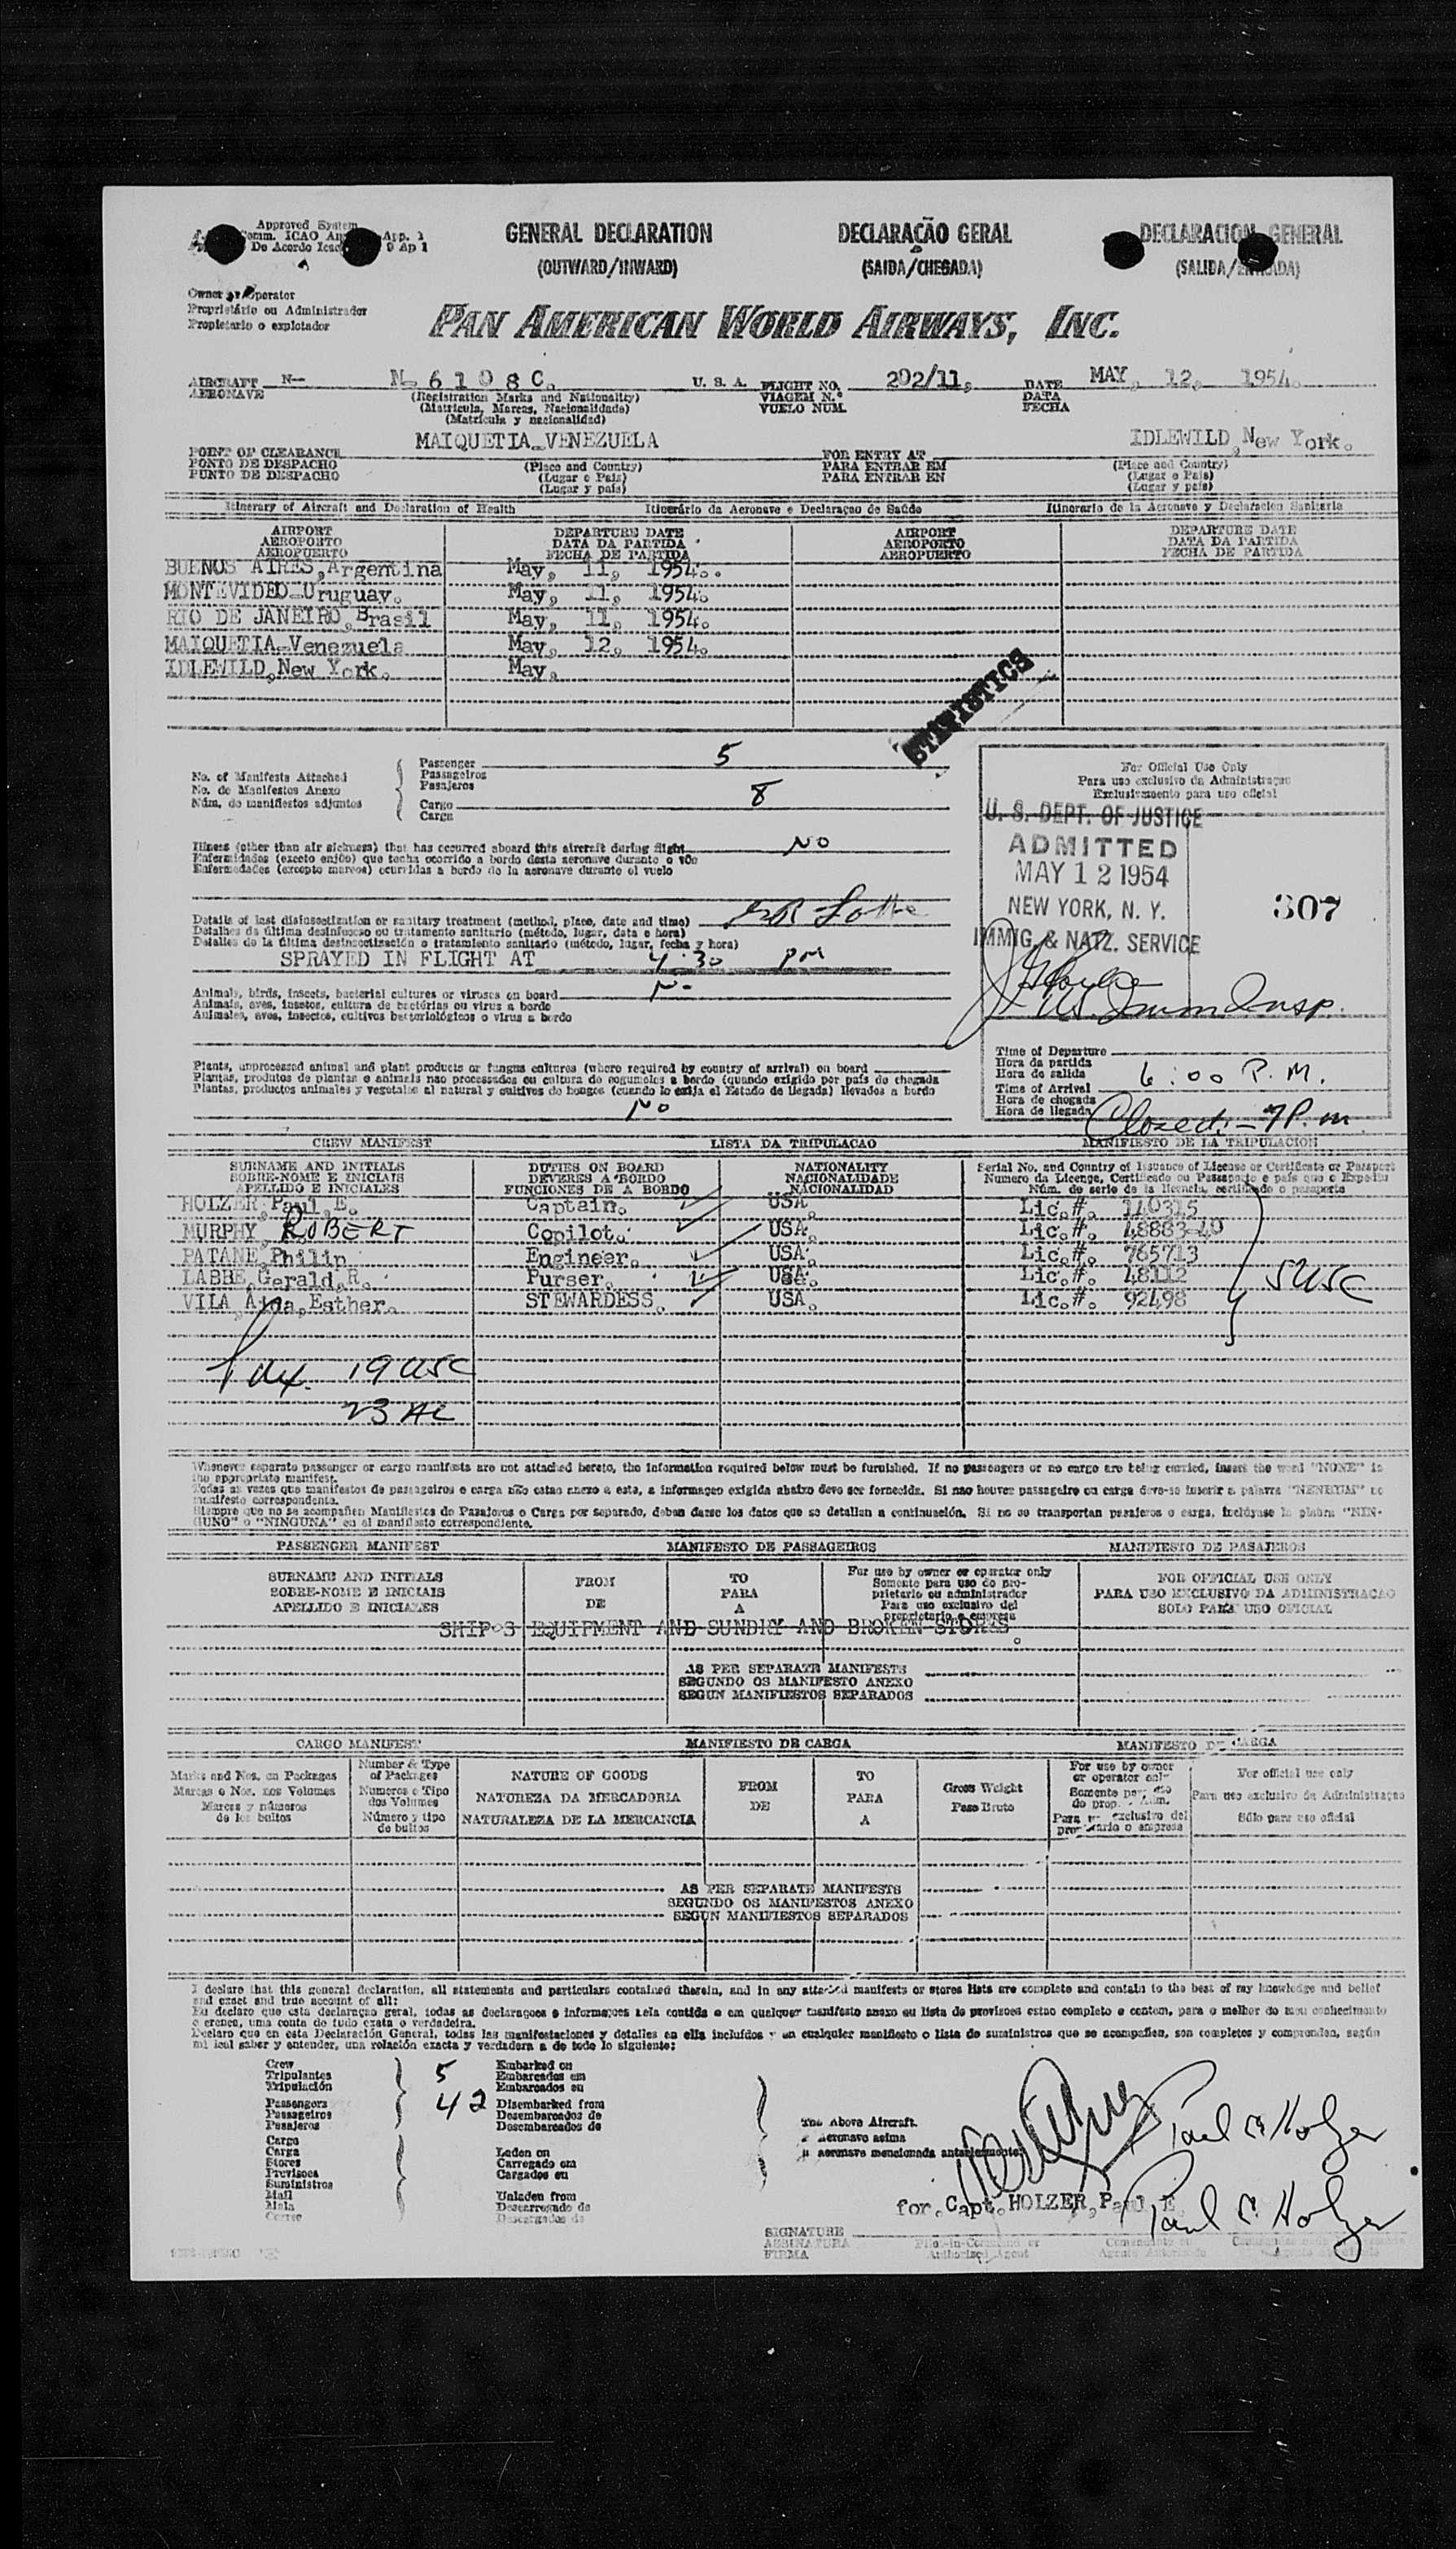 Approved System
Comm. ICAO App. 1
De Acordo 9 Ap 1
GENERAL DECLARATION
(OUTWARD/INWARD)
DECLARAÇÃO GERAL
(SAIDA/CHEGADA)
DECLARACION GENERAL
(SALIDA/ENTRADA)
Owner or Operator
Proprietário ou Administrador
Propietario o explotador
PAN AMERICAN WORLD AIRWAYS, INC.
AIRCRAFT N— N. 6108C. U. S. A. FLIGHT NO. 202/11, DATE MAY, 12, 1954.
AERONAVE (Registration Marks and Nationality) VIAGEM N.º DATA
(Matricula, Marcas, Nacionalidade) VUELO NUM. FECHA
(Matrícula y nacionalidad)
MAIQUETIA-VENEZUELA IDLEWILD, New York.
POINT OF CLEARANCE (Place and Country) FOR ENTRY AT (Place and Country)
PONTO DE DESPACHO (Lugar e Pais) PARA ENTRAR EM (Lugar e Pais)
PUNTO DE DESPACHO (Lugar y país) PARA ENTRAR EN (Lugar y país)
Itinerary of Aircraft and Declaration of Health Itinerário da Aeronave e Declaraçao de Saúde Itinerario de la Aeronave y Declaracion Sanitaria
AIRPORT DEPARTURE DATE AIRPORT DEPARTURE DATE
AEROPORTO DATA DA PARTIDA AEROPORTO DATA DA PARTIDA
AEROPUERTO FECHA DE PARTIDA AEROPUERTO FECHA DE PARTIDA
BUENOS AIRES, Argentina May, 11, 1954.
MONTEVIDEO-Uruguay. May, 11, 1954.
RIO DE JANEIRO, Brasil May, 11, 1954.
MAIQUETIA-Venezuela May, 12, 1954.
IDLEWILD, New York. May,
STATISTICS
No. of Manifests Attached
No. de Manifestos Anexo
Núm. de manifiestos adjuntos
Passenger 5
Passageiros
Pasajeros
Cargo 8
Carga
For Official Use Only
Para uso exclusivo da Administraçao
Exclusivamente para uso oficial
U. S. DEPT. OF JUSTICE
ADMITTED
MAY 12 1954
NEW YORK, N. Y.
IMMIG. & NATZ. SERVICE
307
Insp.
Illness (other than air sickness) that has occurred aboard this aircraft during flight NO
Enfermidades (exceto enjôo) que tenha ocorrido a bordo desta aeronave durante o vôo
Enfermedades (excepto mareos) ocurridas a bordo de la aeronave durante el vuelo
Details of last disinsectization or sanitary treatment (method, place, date and time)
Detalhes da última desinfeccao ou tratamento sanitario (método, lugar, data e hora)
Detalles de la última desinsectización o tratamiento sanitario (método, lugar, fecha y hora)
SPRAYED IN FLIGHT AT 4:30 PM
Animals, birds, insects, bacterial cultures or viruses on board
Animais, aves, insetos, cultura de bactérias ou virus a bordo
Animales, aves, insectos, cultivos bacteriológicos o virus a bordo
Plants, unprocessed animal and plant products or fungus cultures (where required by country of arrival) on board
Plantas, produtos de plantas e animais nao processados ou cultura de cogumelos a bordo (quando exigido por país de chegada
Plantas, productos animales y vegetales al natural y cultivos de hongos (cuando lo exija el Estado de llegada) llevados a bordo
No
Time of Departure
Hora da partida
Hora de salida
Time of Arrival 6:00 P.M.
Hora de chegada
Hora de llegada Closed:- 7 P.m
CREW MANIFEST LISTA DA TRIPULACAO MANIFIESTO DE LA TRIPULACION
SURNAME AND INITIALS DUTIES ON BOARD NATIONALITY Serial No. and Country of Issuance of License or Certificate or Passport
SOBRE-NOME E INICIAIS DEVERES A BORDO NACIONALIDADE Numero da Licença, Certificado ou Passaporte e país que o Expediu
APELLIDO E INICIALES FUNCIONES DE A BORDO NACIONALIDAD Núm. de serie de la licencia, certificado o pasaporte
HOLZER, Paul, E. Captain. USA. Lic.#. 140315
MURPHY, ROBERT Copilot. USA. Lic.#. 48883-40
PATANE, Philip Engineer. USA. Lic.#. 765713
LABBE, Gerald, R. Purser. USA. Lic.#. 48112 5 USC
VILA, Aida, Esther. STEWARDESS. USA. Lic.#. 92498
19 USC
23 AL
Whenever separate passenger or cargo manifests are not attached hereto, the information required below must be furnished. If no passengers or no cargo are being carried, insert the word "NONE" in
the appropriate manifest.
Todas as vezes que manifestos de passageiros e carga não estao anexo a este, a informaçao exigida abaixo deve ser fornecida. Si nao houver passageiro ou carga deve-se inserir a palavra "NENHUM" no
manifesto correspondente.
Siempre que no se acompañen Manifiestos de Pasajeros o Carga por separado, deben darse los datos que se detallan a continuación. Si no se transportan pasajeros o carga, inclúyase la plabra "NIN-
GUNO" o "NINGUNA" en el manifiesto correspondiente.
PASSENGER MANIFEST MANIFESTO DE PASSAGEIROS MANIFIESTO DE PASAJEROS
SURNAME AND INITIALS FROM TO For use by owner or operator only FOR OFFICIAL USE ONLY
SOBRE-NOME E INICIAIS DE PARA Somente para uso do pro- PARA USO EXCLUSIVO DA ADMINISTRACAO
APELLIDO E INICIALES A prietario ou administrador SOLO PARA USO OFICIAL
Para uso exclusivo del
proprietario o empresa
SHIP'S EQUIPMENT AND SUNDRY AND BROKEN STORES.
AS PER SEPARATE MANIFESTS
SEGUNDO OS MANIFESTO ANEXO
SEGUN MANIFIESTOS SEPARADOS
CARGO MANIFEST MANIFIESTO DE CARGA MANIFESTO DE CARGA
Marks and Nos. on Packages
Marcas e Nos. nos Volumes
Marcas y números
de los bultos
Number & Type
of Packages
Numeros e Tipo
dos Volumes
Número y tipo
de bultos
NATURE OF GOODS
NATUREZA DA MERCADORIA
NATURALEZA DE LA MERCANCIA
FROM
DE
TO
PARA
A
Gross Weight
Peso Bruto
For use by owner
or operator only
Somente para uso
do prop. Adm.
Para exclusivo del
propietario o empresa
For official use only
Para uso exclusivo da Administraçao
Sólo para uso oficial
AS PER SEPARATE MANIFESTS
SEGUNDO OS MANIFESTOS ANEXO
SEGUN MANIFIESTOS SEPARADOS
I declare that this general declaration, all statements and particulars contained therein, and in any attached manifests or stores lists are complete and contain to the best of my knowledge and belief
and exact and true account of all:
Eu declaro que esta declaraçao geral, todas as declaraçoes e informaçoes nela contida e em qualquer manifesto anexo ou lista de provisoes estao completo e contem, para o melhor do meu conhecimento
e crença, uma conta de tudo exata e verdadeira.
Declaro que en esta Declaración General, todas las manifestaciones y detalles en ella incluídos y en cualquier manifiesto o lista de suministros que se acompañen, son completos y comprenden, según
mi leal saber y entender, una relación exacta y verdadera a de todo lo siguiente:
Crew 5 Embarked on
Tripulantes Embarcados em
Tripulación Embarcados en
Passengers 42 Disembarked from
Passageiros Desembarcados de
Pasajeros Desembarcados de
Cargo
Carga Laden on
Stores Carregado em
Previsoes Cargados en
Suministros
Mail Unladen from
Mala Descarregado de
Correo Descargados de
The Above Aircraft.
aeronave acima
aeronave mencionada anteriormente:
Paul E Holzer
for. Capt. HOLZER, Paul E.
Paul E. Holzer
SIGNATURE
ASSINATURA Pilot-in-Command or
FIRMA Authorized Agent